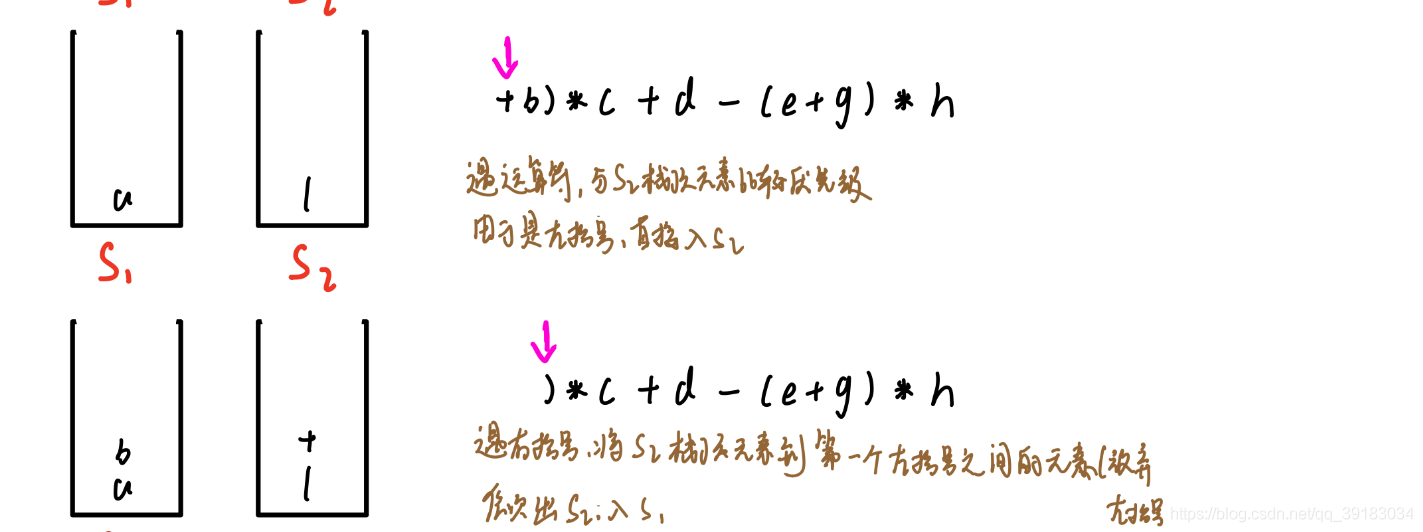 S1 S2
+b)*c+d-(e+g)*h
a (
遇运算符,与S2栈顶元素比较优先级
由于是左括号,直接入S2
S1 S2
)*c+d-(e+g)*h
b +
a (
遇右括号,将S2栈顶元素到第一个左括号之间的元素(放弃
左括号
依次出S2;入S1
https://blog.csdn.net/qq_39183034